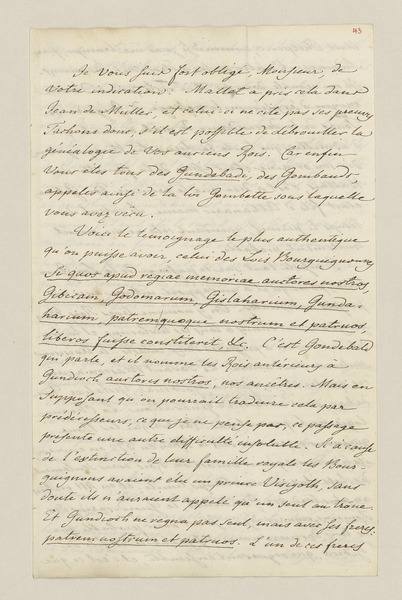 43
Je vous suis fort obligé, Monsieur, de
votre indication. Mallet a pris cela dans
Jean de Müller, et celui-ci ne cite pas ses preuves
Tachons donc, s'il est possible de débrouiller la
généalogie de vos anciens Rois. Car enfin
vous êtes tous des Gundebadi, des Gombauds,
appelés ainsi de la loi Gombette sous laquelle
vous avez vécu.
Voici le témoignage le plus authentique
qu'on puisse avoir, celui des Lois Bourguignonnes
Si quos apud regiae memoriae auctores nostros,
Gibicam, Godomarum, Gislaharium, Gunda-
harium, patremquoque nostrum et patruos,
liberos fuisse constiterit, &c. C'est Gondebald
qui parle, et il nomme les Rois antérieurs à
Gundioch auctores nostros, nos ancêtres. Mais en
supposant qu'on pourroit traduire cela par
prédécesseurs, ce que je ne pense pas, ce passage
présente une autre difficulté insoluble. Si à cause
de l'extinction de leur famille royale les Bour-
guignons avaient élu un prince Visigoth, sans
doute ils n'auraient appelé qu'un seul au trone.
Et Gundioch ne regna pas seul, mais avec ses freres,
patrem nostrum et patruos. L'un de ces freres